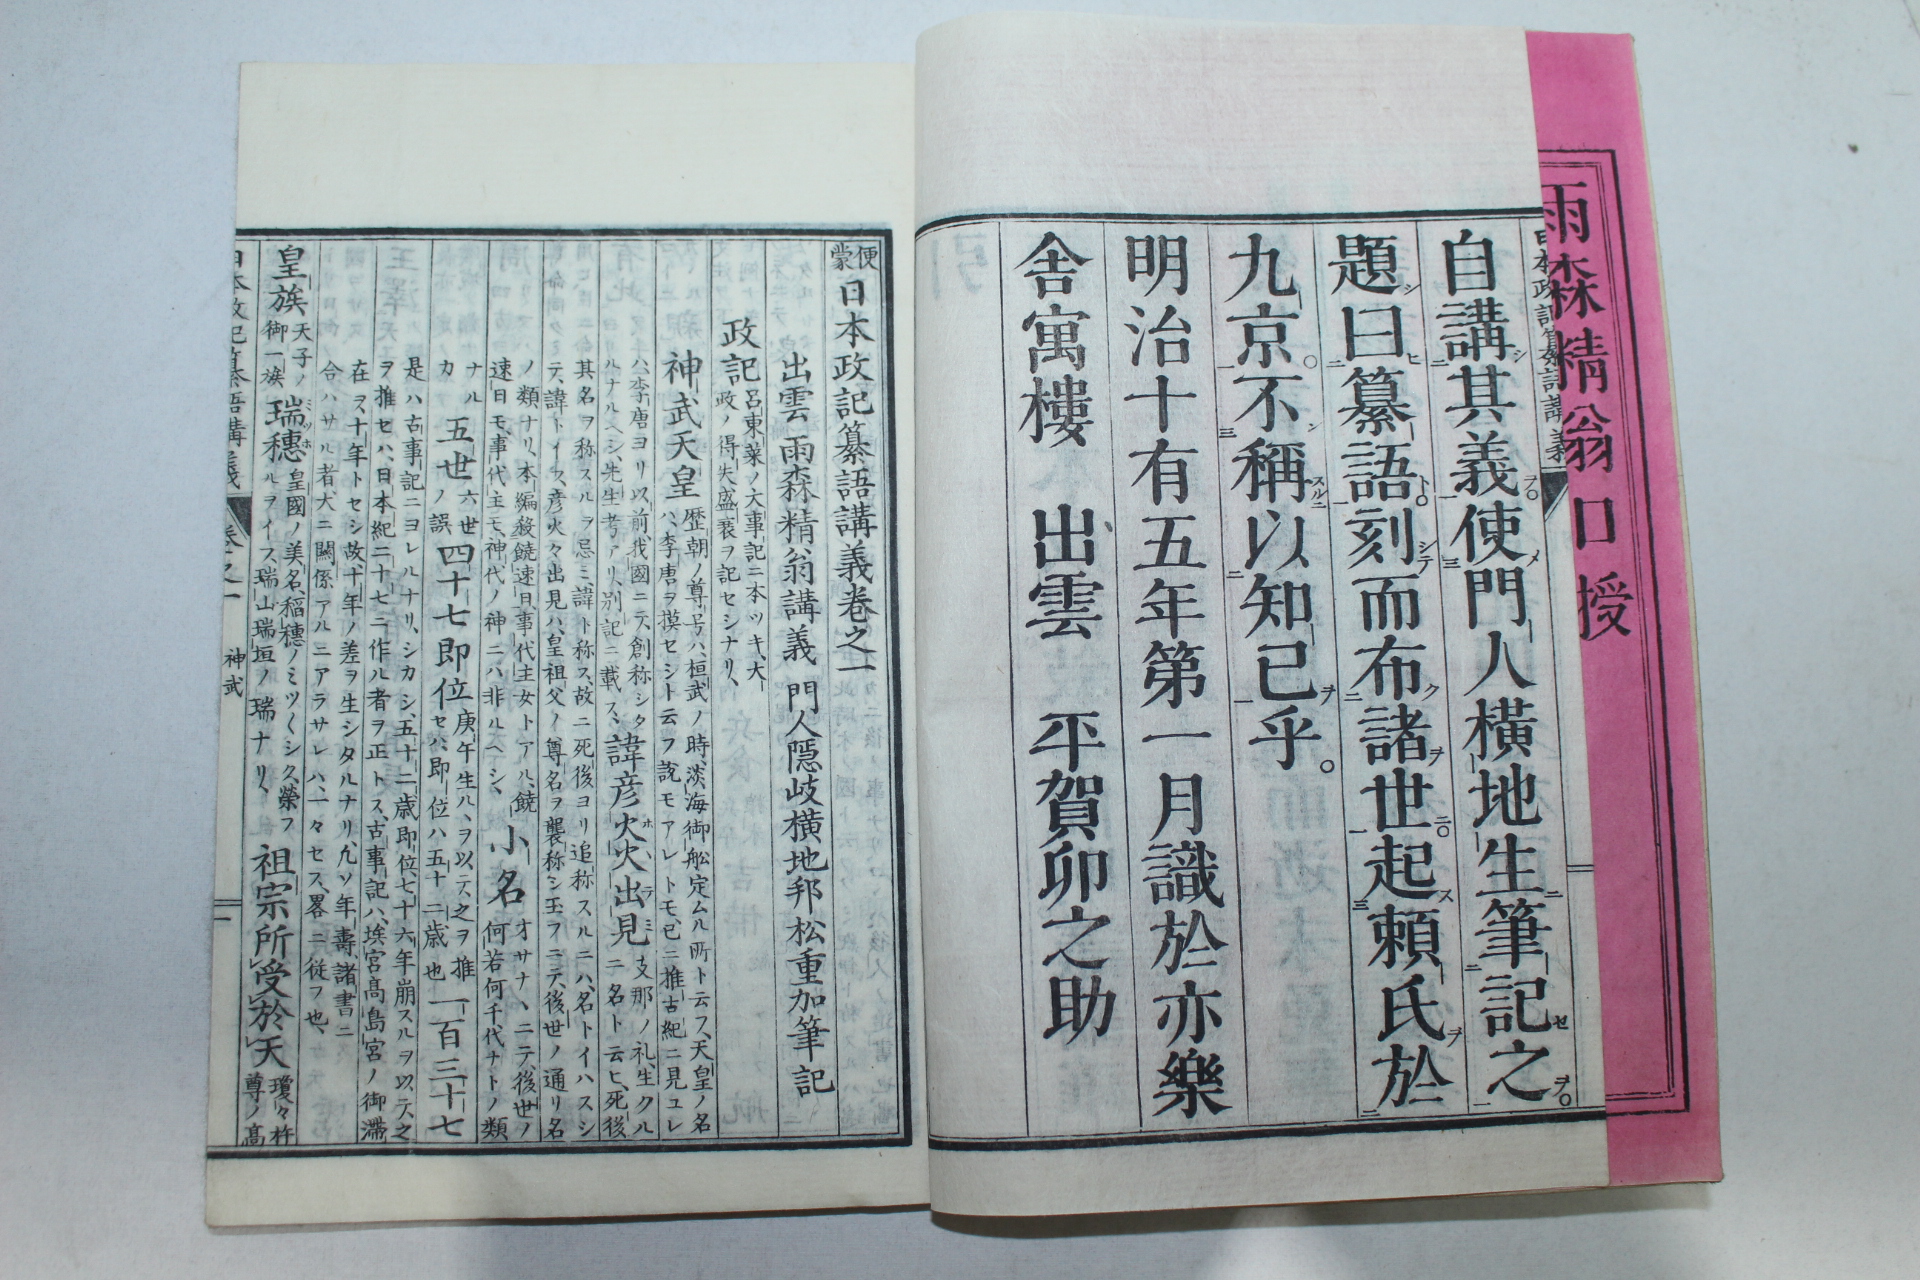 雨森精翁口授
日本政記纂語講義
自講其義使門人横地生筆記之
題曰纂語刻而布諸世起頼氏於
九京不稱以知己乎。
明治十有五年第一月識於亦樂
舎寓樓　出雲　平賀卯之助
便蒙 日本政記纂語講義巻之一
出雲　雨森精翁講義　門人隠岐横地邦松重加筆記
政記 呂東萊ノ大事記ニ本ツキ、大政ノ得失盛衰ヲ記セシナリ、
神武天皇 歴朝ノ尊号ハ、桓武ノ時、淡海御舩定ムル所ト云フ、天皇ノ名ハ、李唐ヲ摸セシト云フ説モアレトモ、已ニ推古紀ニ見ユレ
ハ、李唐ヨリ以前、我國ニテ、創称シタルナルヘシ、先生考アリ、別記ニ載ス、 諱彦火火出見 支那ノ礼、生クルニ名ト云ヒ、死後
其名ヲ称スルヲ忌ミ、諱ト称ス、故ニ死後ヨリ追称スルニハ、名トイハステ、諱トイフ、彦火々出見ハ、皇祖父ノ尊名ヲ襲称シ玉フニテ、後世ノ通リ名
ノ類ナリ、本編殺饒速日、事代主女トアル、饒速日モ、事代主モ、神代ノ神ニハ非ルヘシ、 小名 オサナヽニテ、後世ノ何若何千代ナトノ類
ナルカ 五世 六世ノ誤 四十七即位 庚午生ハ、ヲ以テ、之ヲ推セハ、即位ハ五十二歳也 一百三十七
是ハ古事記ニヨレルナリ、シカシ、五十二歳即位、七十六年崩スルヲ以、テ之ヲ推セハ、日本紀二十七ニ作ル者ヲ正トス、古事記ハ、埃宮高島宮ノ御滯
在ヲ十年トセシ故、十年ノ差ヲ生シタルナリ、九ソ年壽、諸書ニ合ハサル者、大ニ關係アルニアラサレハ、一々セス、畧ニ從フ也、
皇族 天子ノ御一族 瑞穗 皇國ノ美名、稲穗ノミツ〱シク榮フルヲイフ、瑞山瑞垣ノ瑞ナリ、 祖宗所受於天 瓊々杵尊ノ高
日本政記纂語講義　巻之一　神武　一